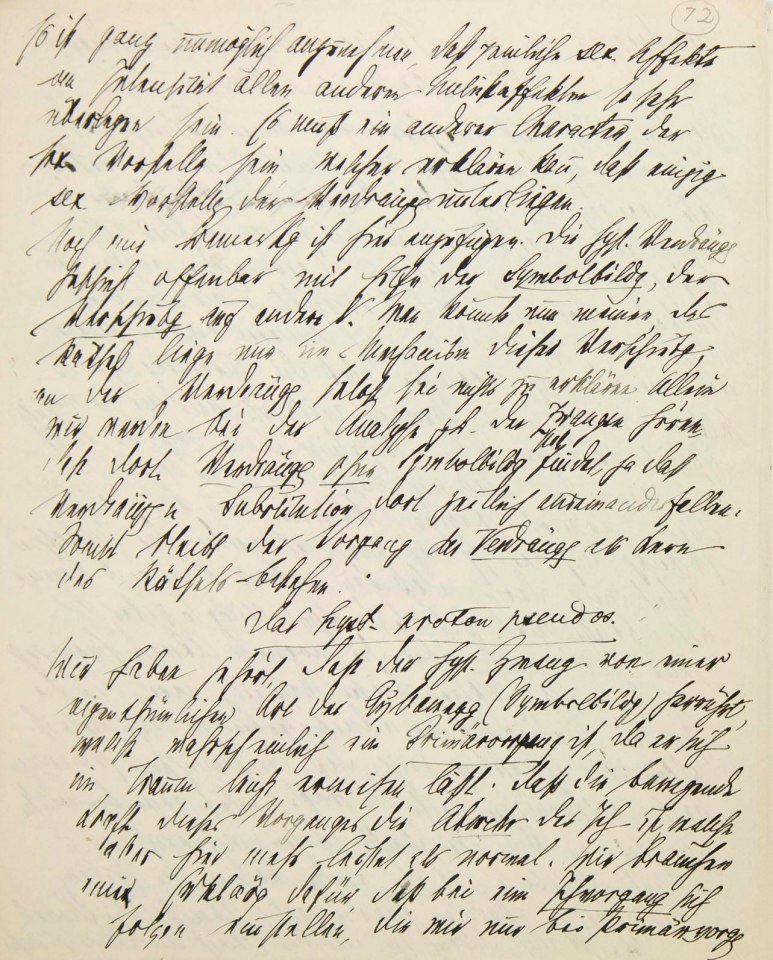 72
Es ist ganz unmöglich anzunehmen, daß peinliche sex. Affekte
an Intensität allen anderen Unlustaffekten so sehr
überlegen sein. Es muß ein anderer Character der
sex Vorstellg sein, welcher erklären kan, daß einzig
sex Vorstellg der Verdrängg unterliegen.
Noch eine Bemerkg ist hier anzufügen. Die hyst. Verdrängg
geschieht offenbar mit Hilfe der Symbolbildg, der
Verschiebg auf andere N. Man könnte nun meinen, das
Rätsel liege nur im Mechanism dieser Verschiebg,
an der Verdrängg selbst sei nichts zu erklären. Allein
wir werden bei der Analyse zB. der Zwangsn hören,
daß dort Verdrängg ohne Symbolbildg statt findet, ja daß
Verdrängg u Substitution dort zeitlich auseinanderfallen.
Somit bleibt der Vorgang der Verdrängg als Kern
des Rätsels bestehen.
Das hyst. proton pseudos.
Wir haben gehört, daß der hyst. Zwang von einer
eigenthümlichen Art der Qη̇bewegg (Symbolbildg) herrührt,
welche wahrscheinlich ein Primärvorgang ist, da er sich
im Traum leicht erweisen läßt. Daß die bewegende
Kraft dieses Vorganges die Abwehr des Ich ist, welche
aber hier mehr leistet als normal. Wir brauchen
eine Erklärg dafür daß bei eim Ichvorgang sich
Folgen einstellen, die wir nur bei Primärvorgg